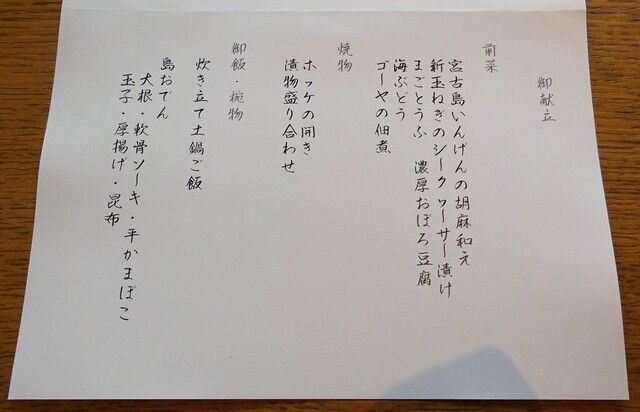 御献立
前菜
宮古島いんげんの胡麻和え
新玉ねぎのシークヮーサー漬け
まごとうふ 濃厚おぼろ豆腐
海ぶどう
ゴーヤの佃煮
焼物
ホッケの開き
漬物盛り合わせ
御飯・椀物
炊き立て土鍋ご飯
島おでん
大根・軟骨ソーキ・平かまぼこ
玉子・厚揚げ・昆布